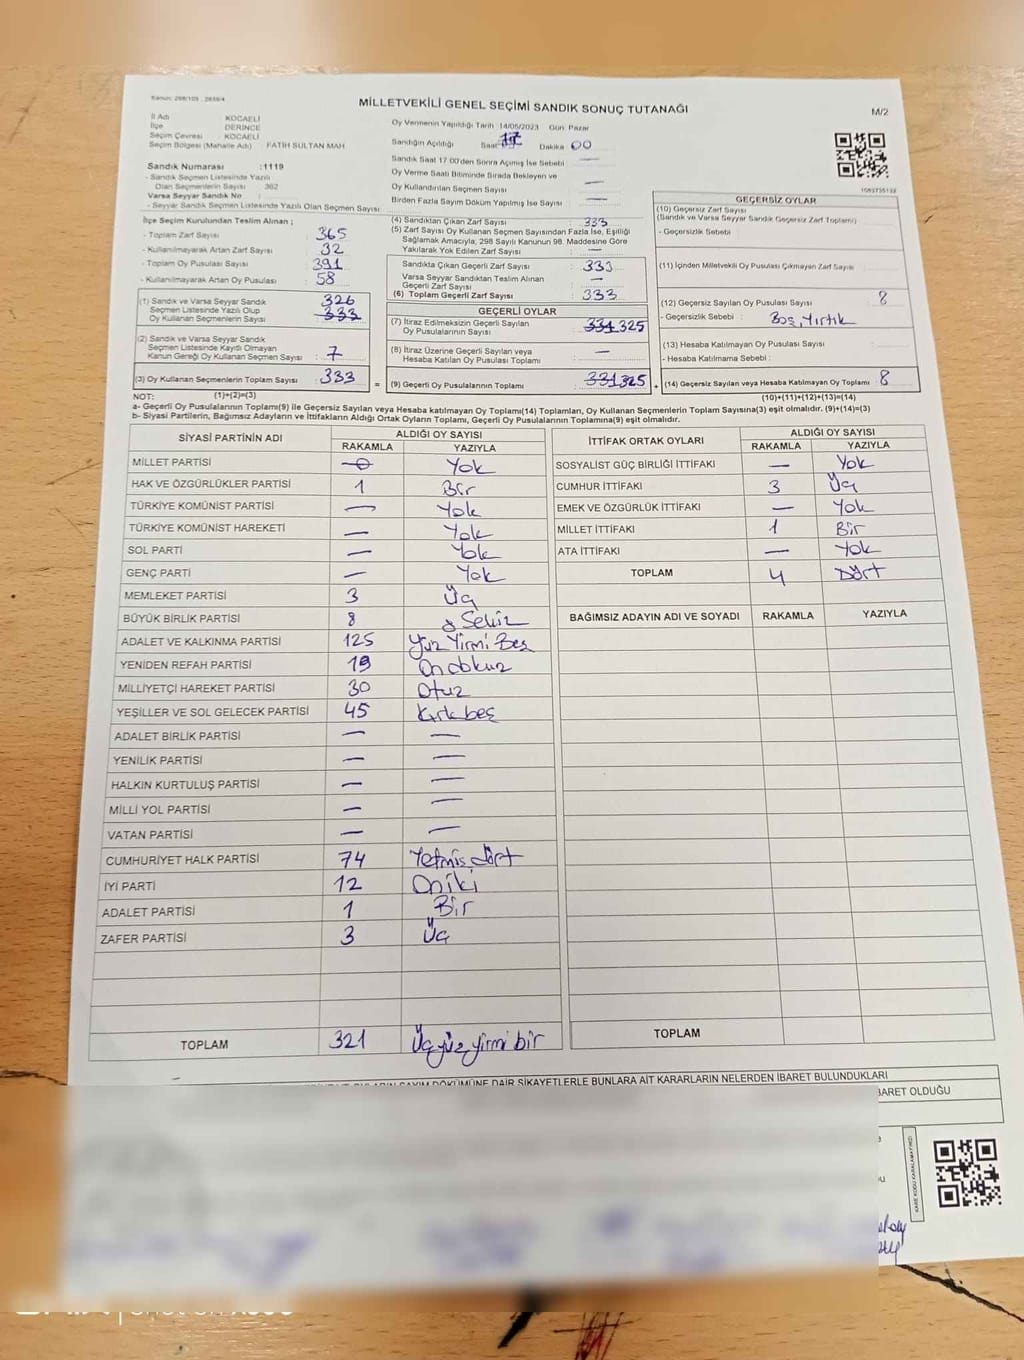 Kanun: 298/105 , 2839/4
MİLLETVEKİLİ GENEL SEÇİMİ SANDIK SONUÇ TUTANAĞI
M/2
İl Adı KOCAELİ
İlçe DERİNCE
Seçim Çevresi KOCAELİ
Seçim Bölgesi (Mahalle Adı) FATİH SULTAN MAH
Sandık Numarası :1119
- Sandık Seçmen Listesinde Yazılı
Olan Seçmenlerin Sayısı 362
Varsa Seyyar Sandık No :
- Seyyar Sandık Seçmen Listesinde Yazılı Olan Seçmen Sayısı
Oy Vermenin Yapıldığı Tarih :14/05/2023 Gün: Pazar
Sandığın Açıldığı Saat Dakika 00
Sandık Saat 17:00'den Sonra Açılmış İse Sebebi —
Oy Verme Saati Bitiminde Sırada Bekleyen ve
Oy Kullandırılan Seçmen Sayısı —
Birden Fazla Sayım Döküm Yapılmış İse Sayısı —
İlçe Seçim Kurulundan Teslim Alınan ;
- Toplam Zarf Sayısı : 365
- Kullanılmayarak Artan Zarf Sayısı : 32
- Toplam Oy Pusulası Sayısı : 391
- Kullanılmayarak Artan Oy Pusulası : 58
(1) Sandık ve Varsa Seyyar Sandık
Seçmen Listesinde Yazılı Olup
Oy Kullanan Seçmenlerin Sayısı : 326 333
(2) Sandık ve Varsa Seyyar Sandık
Seçmen Listesinde Kaydı Olmayan
Kanun Gereği Oy Kullanan Seçmen Sayısı : 7
(3) Oy Kullanan Seçmenlerin Toplam Sayısı : 333
(4) Sandıktan Çıkan Zarf Sayısı : 333
(5) Zarf Sayısı Oy Kullanan Seçmen Sayısından Fazla İse, Eşitliği
Sağlamak Amacıyla, 298 Sayılı Kanunun 98. Maddesine Göre
Yakılarak Yok Edilen Zarf Sayısı : —
Sandıkta Çıkan Geçerli Zarf Sayısı : 333
Varsa Seyyar Sandıktan Teslim Alınan
Geçerli Zarf Sayısı : —
(6) Toplam Geçerli Zarf Sayısı : 333
GEÇERLİ OYLAR
(7) İtiraz Edilmeksizin Geçerli Sayılan
Oy Pusulalarının Sayısı : 331 325
(8) İtiraz Üzerine Geçerli Sayılan veya
Hesaba Katılan Oy Pusulası Toplamı : —
= (9) Geçerli Oy Pusulalarının Toplamı : 331 325 +
1093735132
GEÇERSİZ OYLAR
(10) Geçersiz Zarf Sayısı
(Sandık ve Varsa Seyyar Sandık Geçersiz Zarf Toplamı)
- Geçersizlik Sebebi :
(11) İçinden Milletvekili Oy Pusulası Çıkmayan Zarf Sayısı :
(12) Geçersiz Sayılan Oy Pusulası Sayısı : 8
- Geçersizlik Sebebi : Boş, Yırtık
(13) Hesaba Katılmayan Oy Pusulası Sayısı :
- Hesaba Katılmama Sebebi :
(14) Geçersiz Sayılan veya Hesaba Katılmayan Oy Toplamı : 8
NOT: (1)+(2)=(3) (10)+(11)+(12)+(13)=(14)
a- Geçerli Oy Pusulalarının Toplamı(9) ile Geçersiz Sayılan veya Hesaba katılmayan Oy Toplamı(14) Toplamları, Oy Kullanan Seçmenlerin Toplam Sayısına(3) eşit olmalıdır. (9)+(14)=(3)
b- Siyasi Partilerin, Bağımsız Adayların ve İttifakların Aldığı Ortak Oyların Toplamı, Geçerli Oy Pusulalarının Toplamına(9) eşit olmalıdır.
SİYASİ PARTİNİN ADI ALDIĞI OY SAYISI
RAKAMLA YAZIYLA
MİLLET PARTİSİ 0 Yok
HAK VE ÖZGÜRLÜKLER PARTİSİ 1 Bir
TÜRKİYE KOMÜNİST PARTİSİ — Yok
TÜRKİYE KOMÜNİST HAREKETİ — Yok
SOL PARTİ — Yok
GENÇ PARTİ — Yok
MEMLEKET PARTİSİ 3 Üç
BÜYÜK BİRLİK PARTİSİ 8 Sekiz
ADALET VE KALKINMA PARTİSİ 125 Yüz Yirmi Beş
YENİDEN REFAH PARTİSİ 19 On dokuz
MİLLİYETÇİ HAREKET PARTİSİ 30 Otuz
YEŞİLLER VE SOL GELECEK PARTİSİ 45 Kırkbeş
ADALET BİRLİK PARTİSİ — —
YENİLİK PARTİSİ — —
HALKIN KURTULUŞ PARTİSİ — —
MİLLİ YOL PARTİSİ — —
VATAN PARTİSİ — —
CUMHURİYET HALK PARTİSİ 74 Yetmiş dört
İYİ PARTİ 12 Oniki
ADALET PARTİSİ 1 Bir
ZAFER PARTİSİ 3 Üç
TOPLAM 321 Üçyüz yirmi bir
İTTİFAK ORTAK OYLARI ALDIĞI OY SAYISI
RAKAMLA YAZIYLA
SOSYALİST GÜÇ BİRLİĞİ İTTİFAKI — Yok
CUMHUR İTTİFAKI 3 Üç
EMEK VE ÖZGÜRLÜK İTTİFAKI — Yok
MİLLET İTTİFAKI 1 Bir
ATA İTTİFAKI — Yok
TOPLAM 4 Dört
BAĞIMSIZ ADAYIN ADI VE SOYADI RAKAMLA YAZIYLA
TOPLAM
OYLARIN SAYIM DÖKÜMÜNE DAİR ŞİKAYETLERLE BUNLARA AİT KARARLARIN NELERDEN İBARET BULUNDUKLARI
İBARET OLDUĞU
KARE KODU KARALAMAYINIZ!